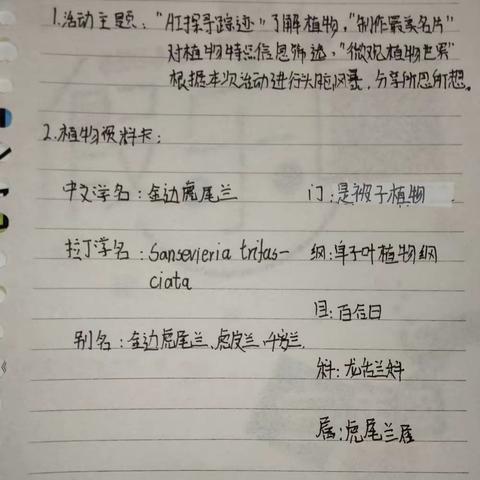 1.活动主题："肛探寻踪迹"了解植物,"制作最美名片"
对植物特点信息筛选,"微观植物世界"
根据本次活动进行头脑风暴,分享所思所想。
2.植物资料卡：
中文学名：金边虎尾兰
门：是被子植物
拉丁学名：Sansevieria trifas-
ciata
纲：单子叶植物纲
目：百合目
别名：金边虎尾兰、虎皮兰、千岁兰
科：龙舌兰科
属：虎尾兰属